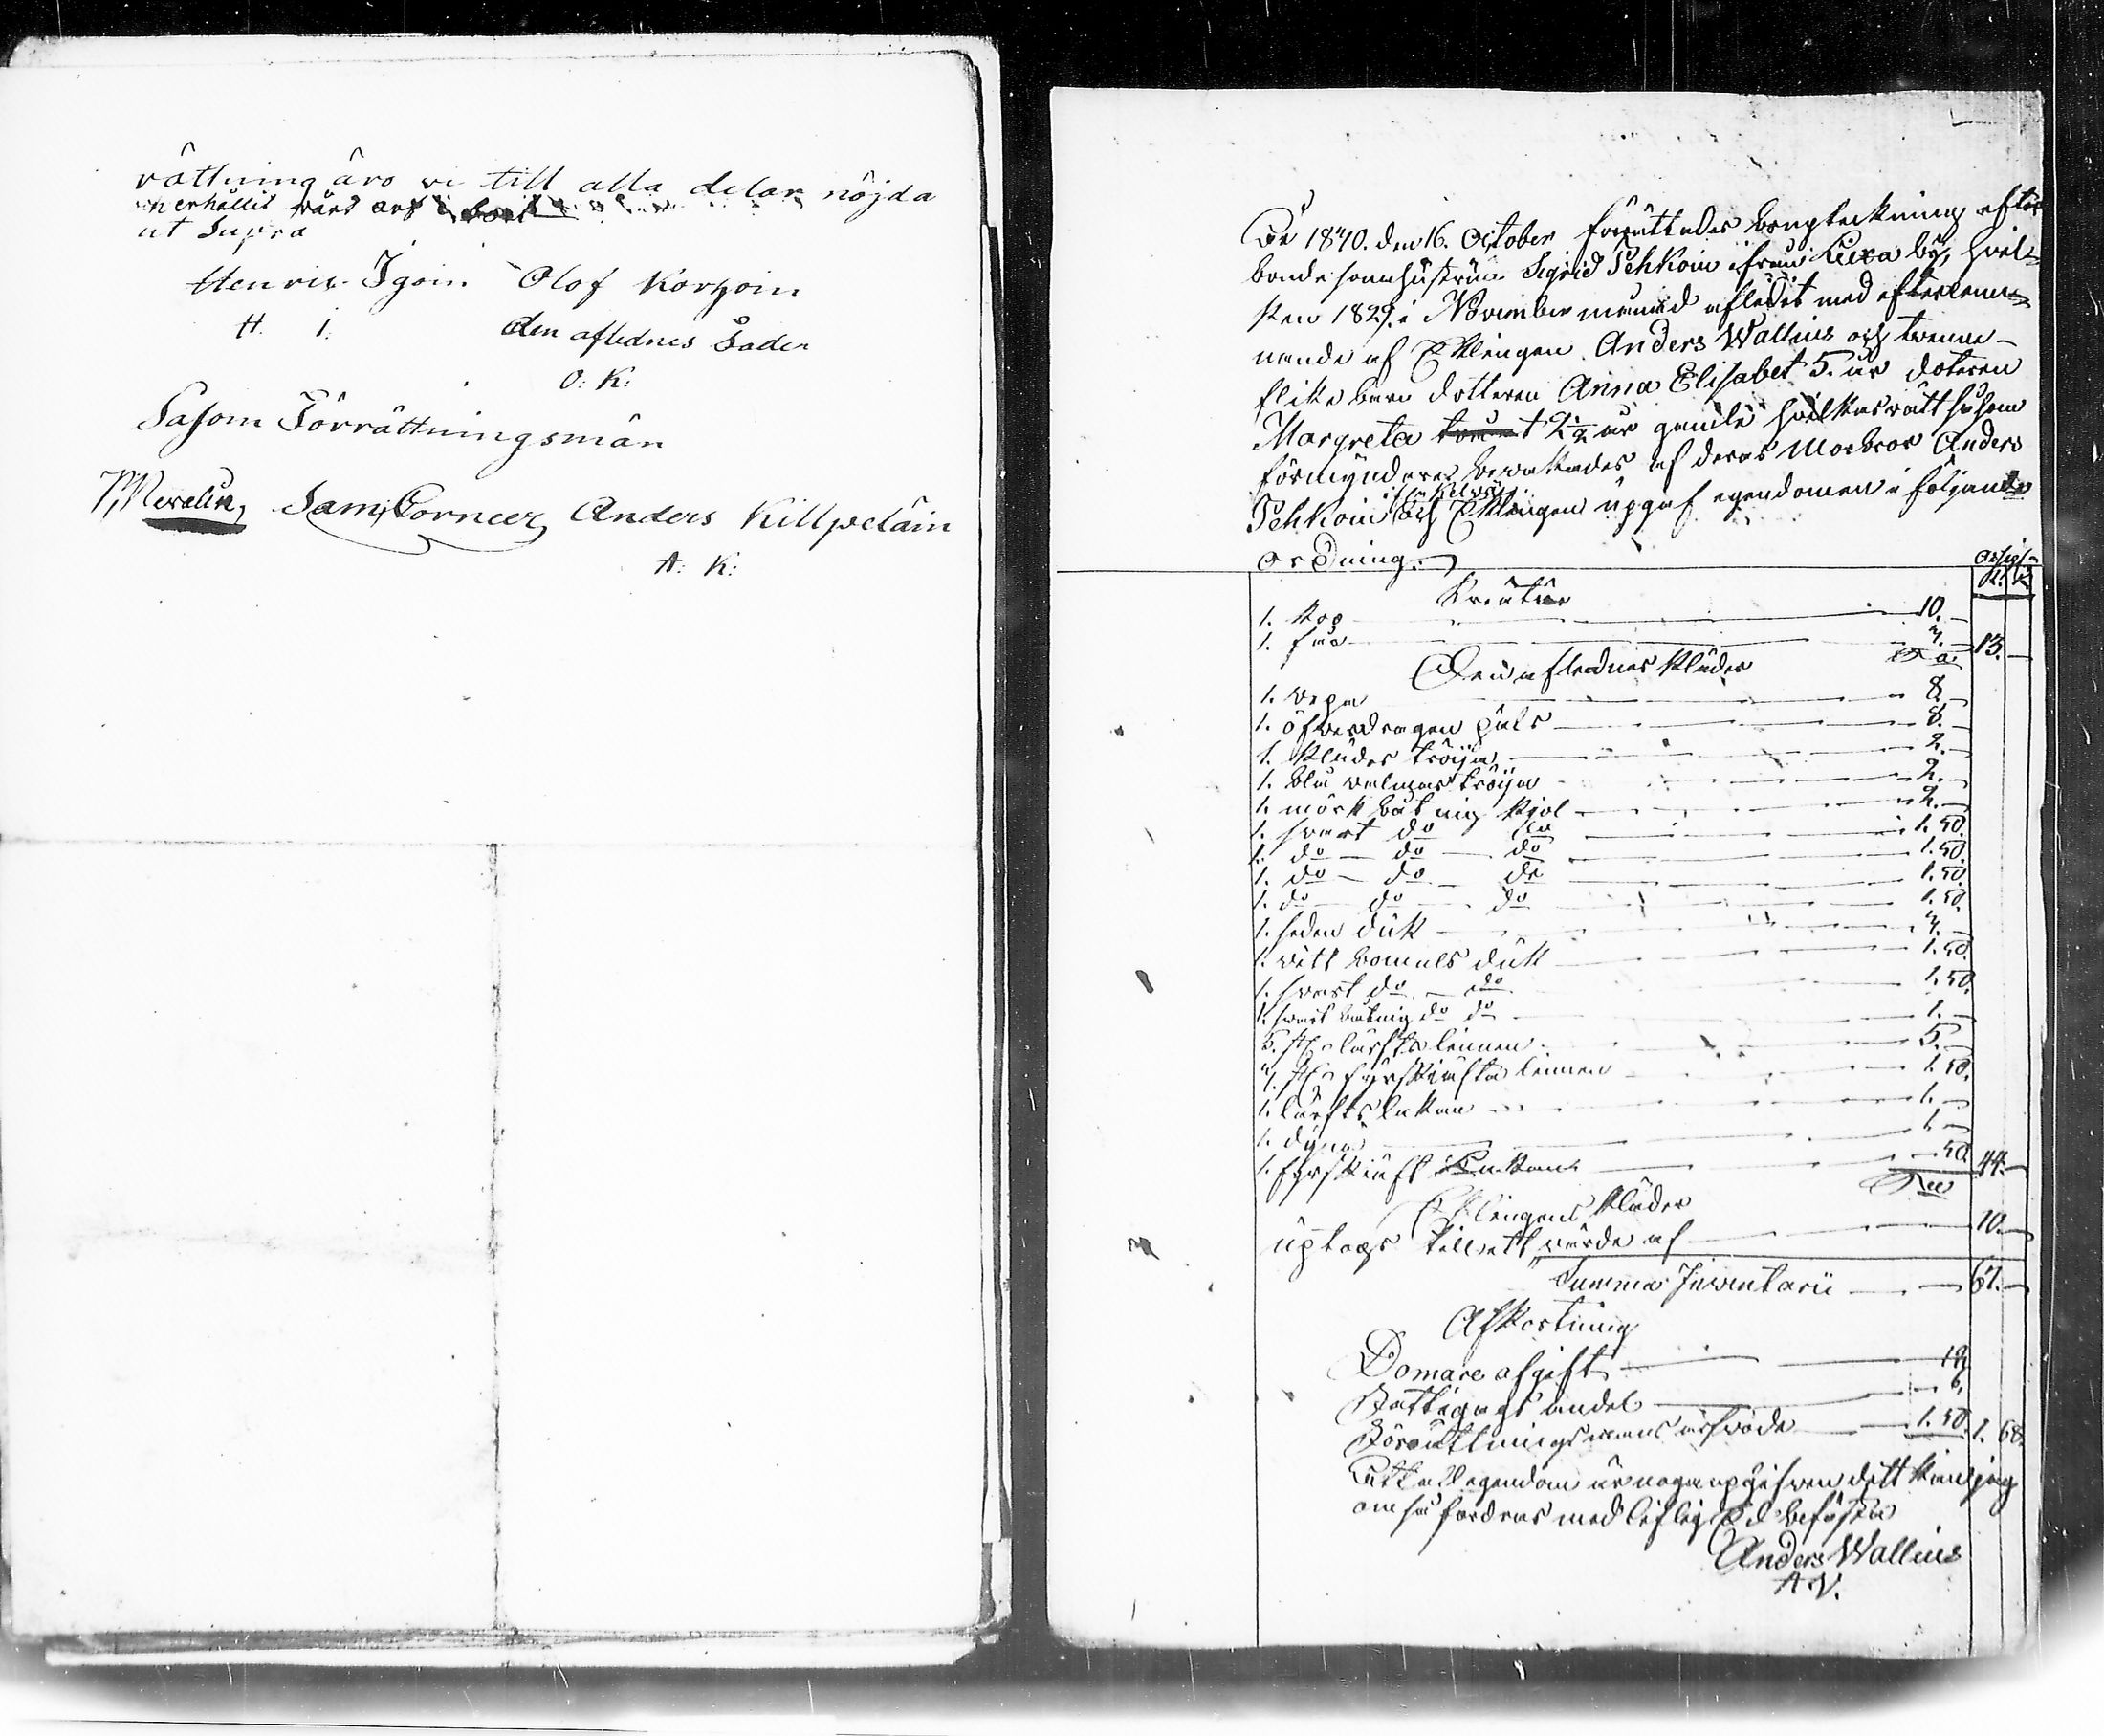 rättning äro vi till alla delar nöjda
erhållit vårt arf
ut Supra
Henric Igoin Olof Korhoin
H. I. den aflednes Fader
O: K:
Såsom Förrättningsmän
Sam Corneer, Anders Killpeläin
A: K:
År 1840. den 16. October förrättades bouptekning efter
bondesonshustrun Sigrid Pehkoin ifrån Lixa by, hvil-
ken 1829. i November månad aflidit med efterlem-
nande af Eklingen Anders Wallius och twenne
flike barn dotteren Anna Elisabet 5. år doteren
Margreta 2½ år gamla hvilkas rätt såsom
förmyndare bevakades af deras Morbror Anders
Pehkoin och Eklingen uppgaf egendomen i följande
ordning.
Kreatur
1. Koo 10.
1. fåå 3. 13.
Den aflednes Kläder
1. 8.
1. öfverdragen päls 8.
1. Klädes tröija 2.
1. blå valmars tröija 2.
1. mörk råtnig Kjol 2.
1. svart do do 1. 50.
1. do do do 1. 50.
1. do do do 1. 50.
1. do do do 1. 50.
1. siden duk 3.
1. vitt bomuls duk 1. 50.
1. svart do do 1. 50.
1. svart råtnig do do 1.
5. st. lärfts linnen 5.
st. fyrskiäfta linnen 1. 50.
1. lärfts lakan 1.
1. dyna 1.
1. fyrskiäft Lakan 50. 44.
Eklingens Kläder
uptogs till ett värde af 10.
Summa Inventarii 67.
Afkortning
Domare afgift 12
Fattigas andel 6,
Förrättningsmans arfvode 1. 50. 1. 68.
att all egendom är noga upgifven dett kan jag
om så fordras med liflig Ed befästa
Anders Wallius
A. V.